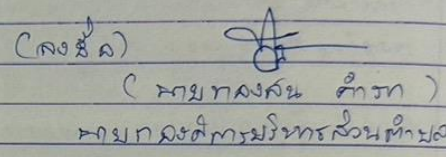 (ลงชื่อ)
( นายทองสน คำรา )
นายกองค์การบริหารส่วนตำบล